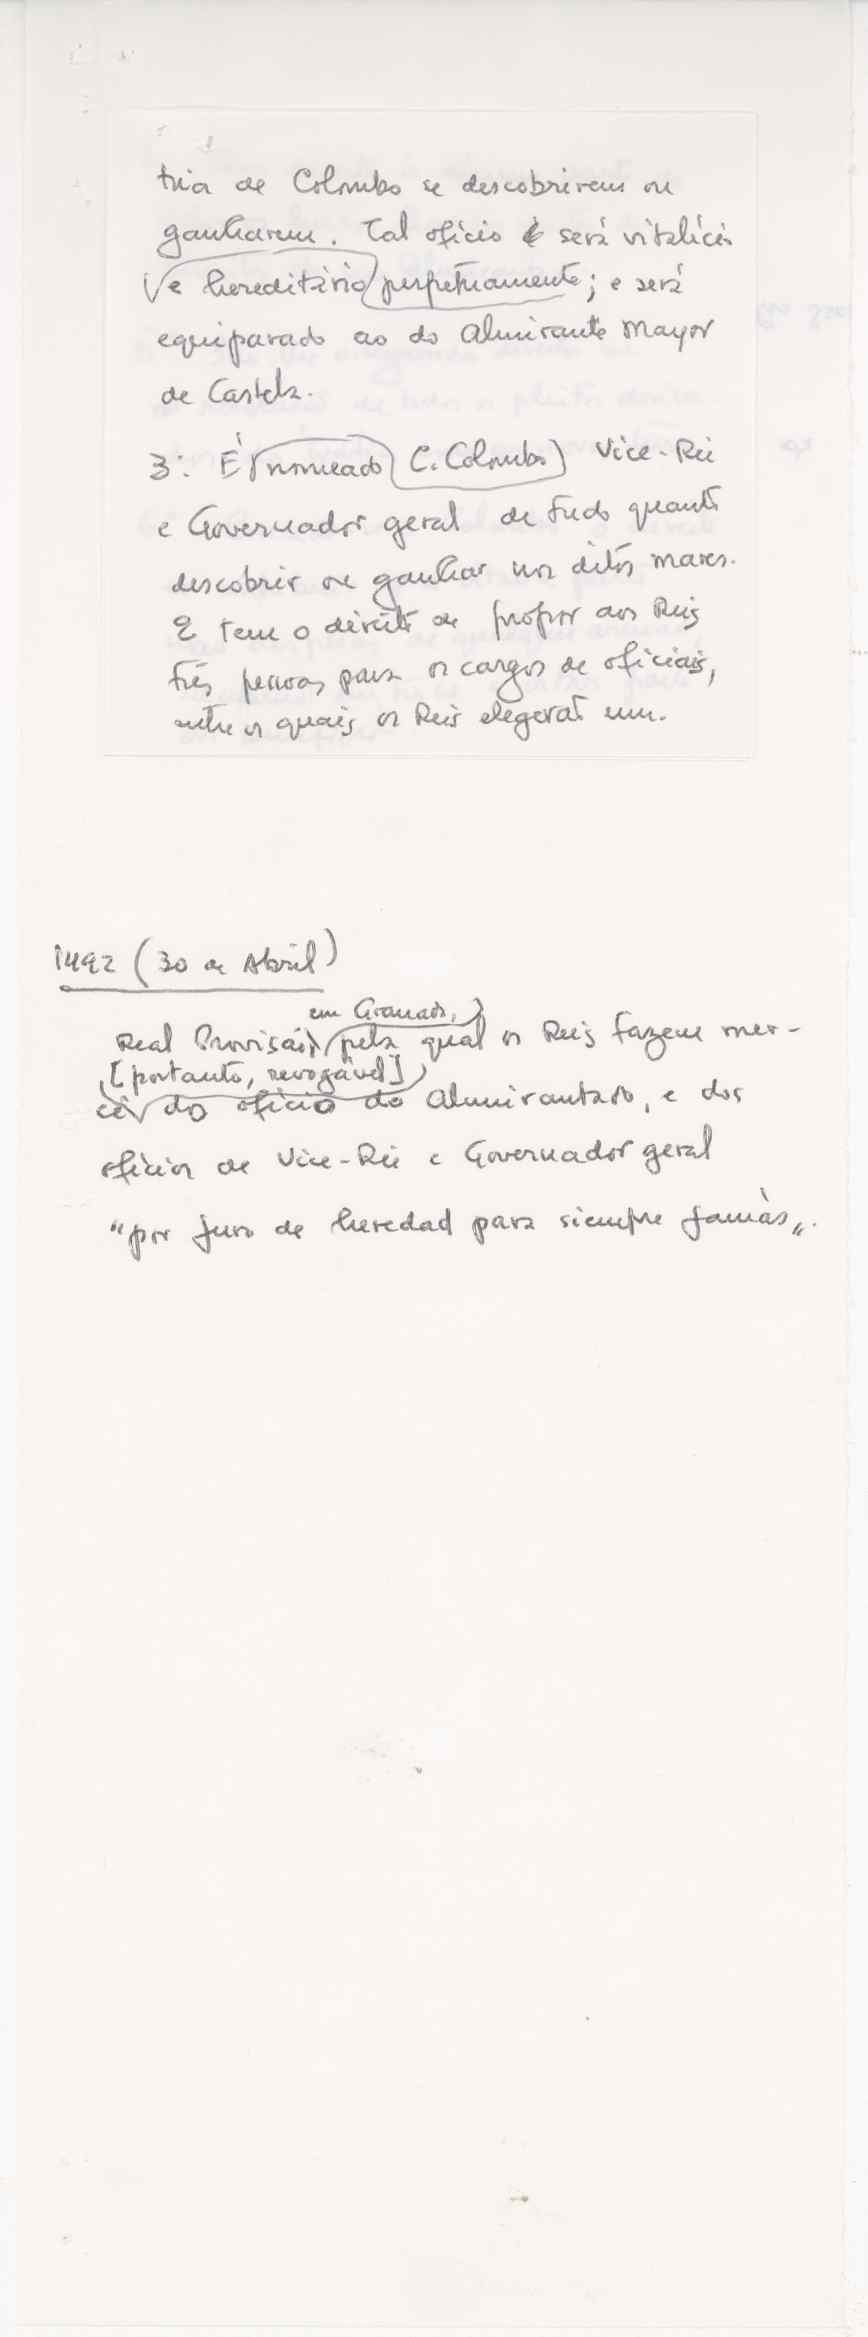 tria de Colombo se descobrirem ou
ganharem. Tal ofício será vitalício
e hereditário perpetuamente; e será
equiparado ao do Almirante Mayor
de Castela.
3º: É nomeado C. Colombo Vice-Rei
e Governador geral de tudo quanto
descobrir ou ganhar nos ditos mares.
E tem o direito de propor aos Reis
três pessoas para os cargos de oficiais,
entre os quais os Reis elegerão um.
1492 (30 de Abril)
em Granada,
Real Provisão pela qual os Reis fazem mer-
[portanto, revogável]
cê do ofício do Almirantado, e dos
ofícios de Vice-Rei e Governador geral
"por juro de heredad para siempre jamás".